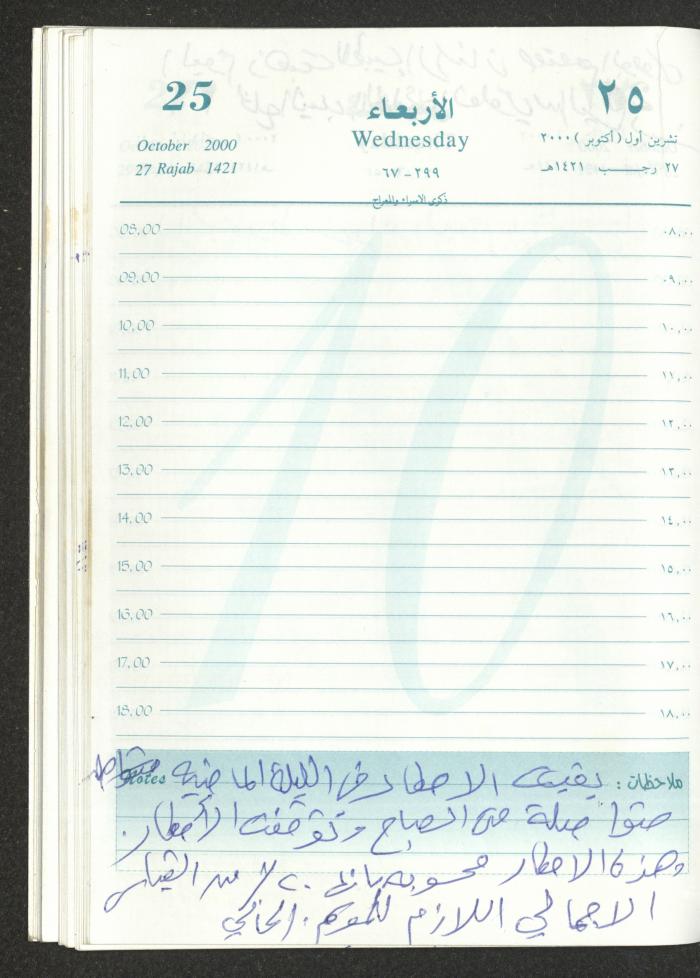 25
الأربعاء
٢٥
October 2000
Wednesday
تشرين أول (أكتوبر) ٢٠٠٠
27 Rajab 1421
٢٩٩ - ٦٧
٢٧ رجب ١٤٢١هـ
ذكرى الاسراء والمعراج
08,00 ٠٨,٠٠
09,00 ٠٩,٠٠
10,00 ١٠,٠٠
11,00 ١١,٠٠
12,00 ١٢,٠٠
13,00 ١٣,٠٠
14,00 ١٤,٠٠
15,00 ١٥,٠٠
16,00 ١٦,٠٠
17,00 ١٧,٠٠
18,00 ١٨,٠٠
10
ملاحظات : بقيت الامطار في الليلة الماضية Notes
متواصلة حتى الصباح وتوقفت الأمطار.
وهذه الامطار محسوبه ٢٠٪ من
الاجمالي اللازم للموسم الحالي